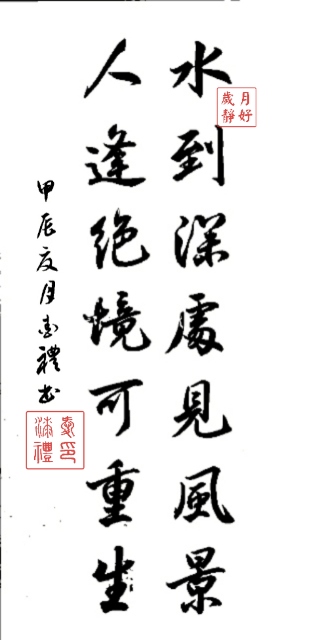 水到深處見風景
人逢绝境可重生
甲辰夏月
禮书
歲月
靜好